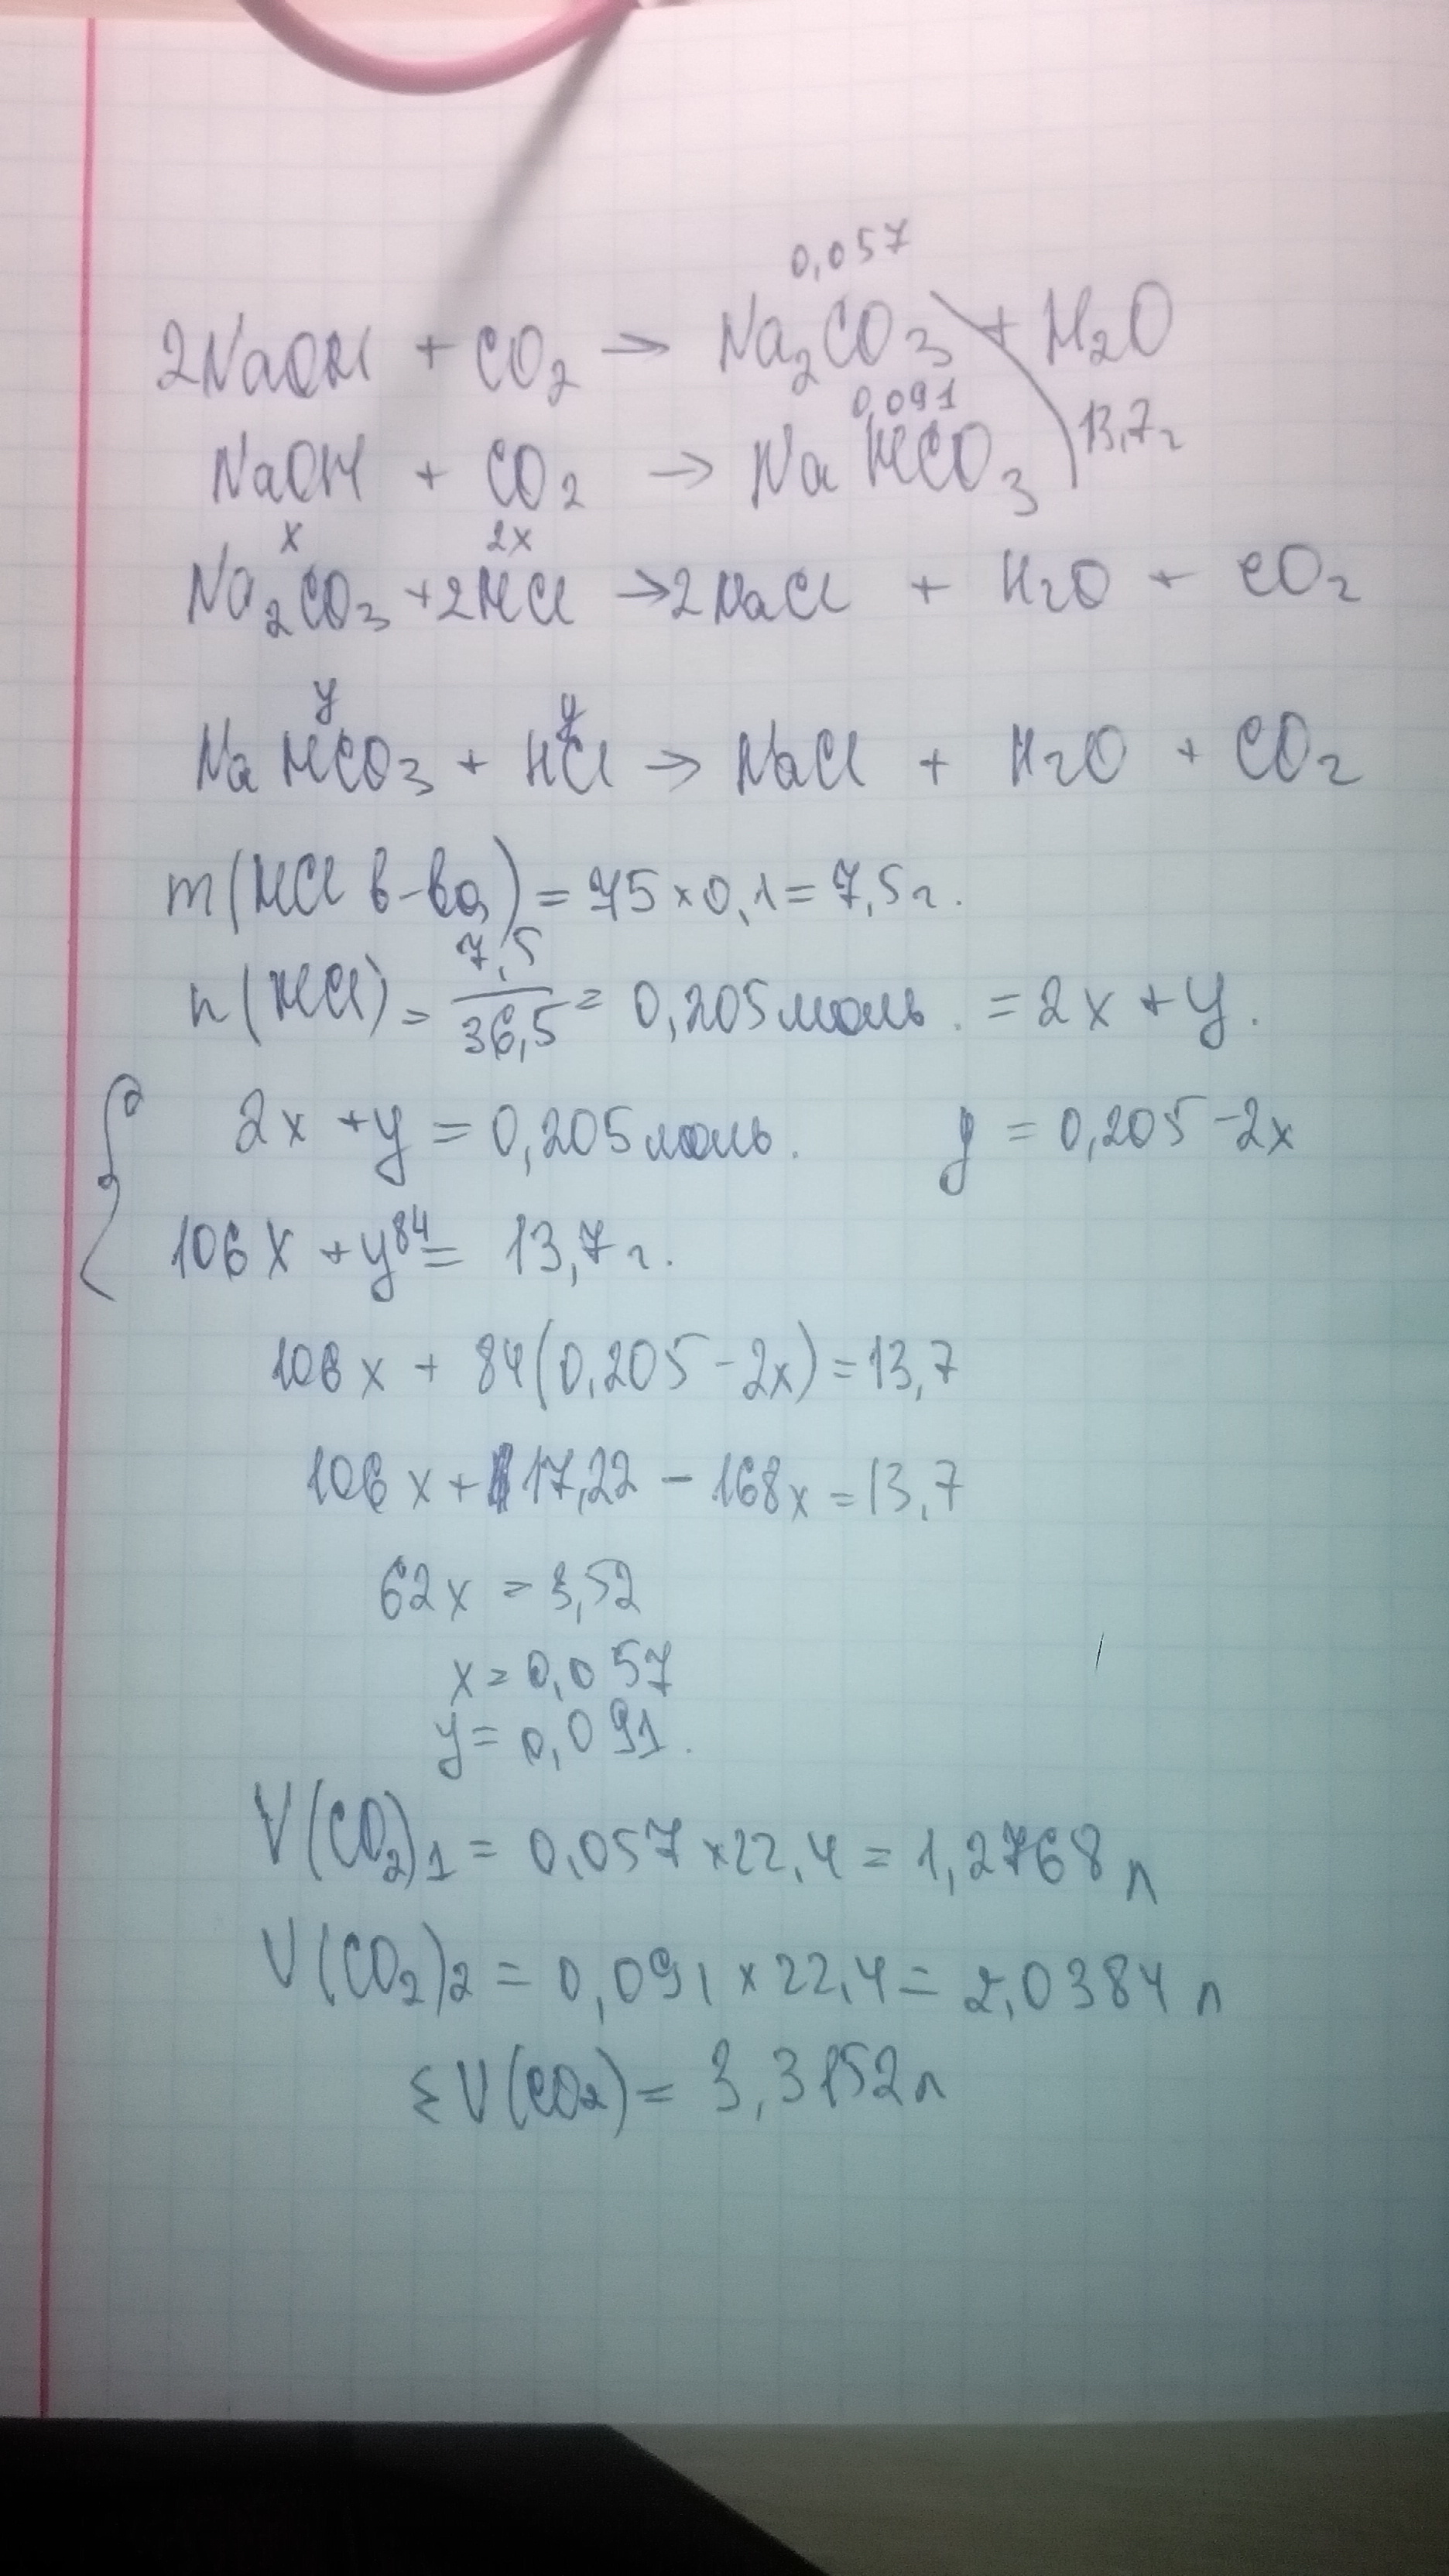 0,057
2NaOH + CO₂ → Na₂CO₃ + H₂O
0,091
NaOH + CO₂ → NaHCO₃
13,7г
x 2x
Na₂CO₃ + 2HCl → 2NaCl + H₂O + CO₂
y y
NaHCO₃ + HCl → NaCl + H₂O + CO₂
m(HCl в-ва) = 75 × 0,1 = 7,5г.
n(HCl) = 7,5/36,5 = 0,205 моль. = 2x + y.
{ 2x + y = 0,205 моль. y = 0,205 - 2x
106x + y84 = 13,7г.
106x + 84(0,205 - 2x) = 13,7
106x + 17,22 - 168x = 13,7
62x = 3,52
x = 0,057
y = 0,091.
V(CO₂)₁ = 0,057 × 22,4 = 1,2768 л
V(CO₂)₂ = 0,091 × 22,4 = 2,0384 л
ΣV(CO₂) = 3,3152л